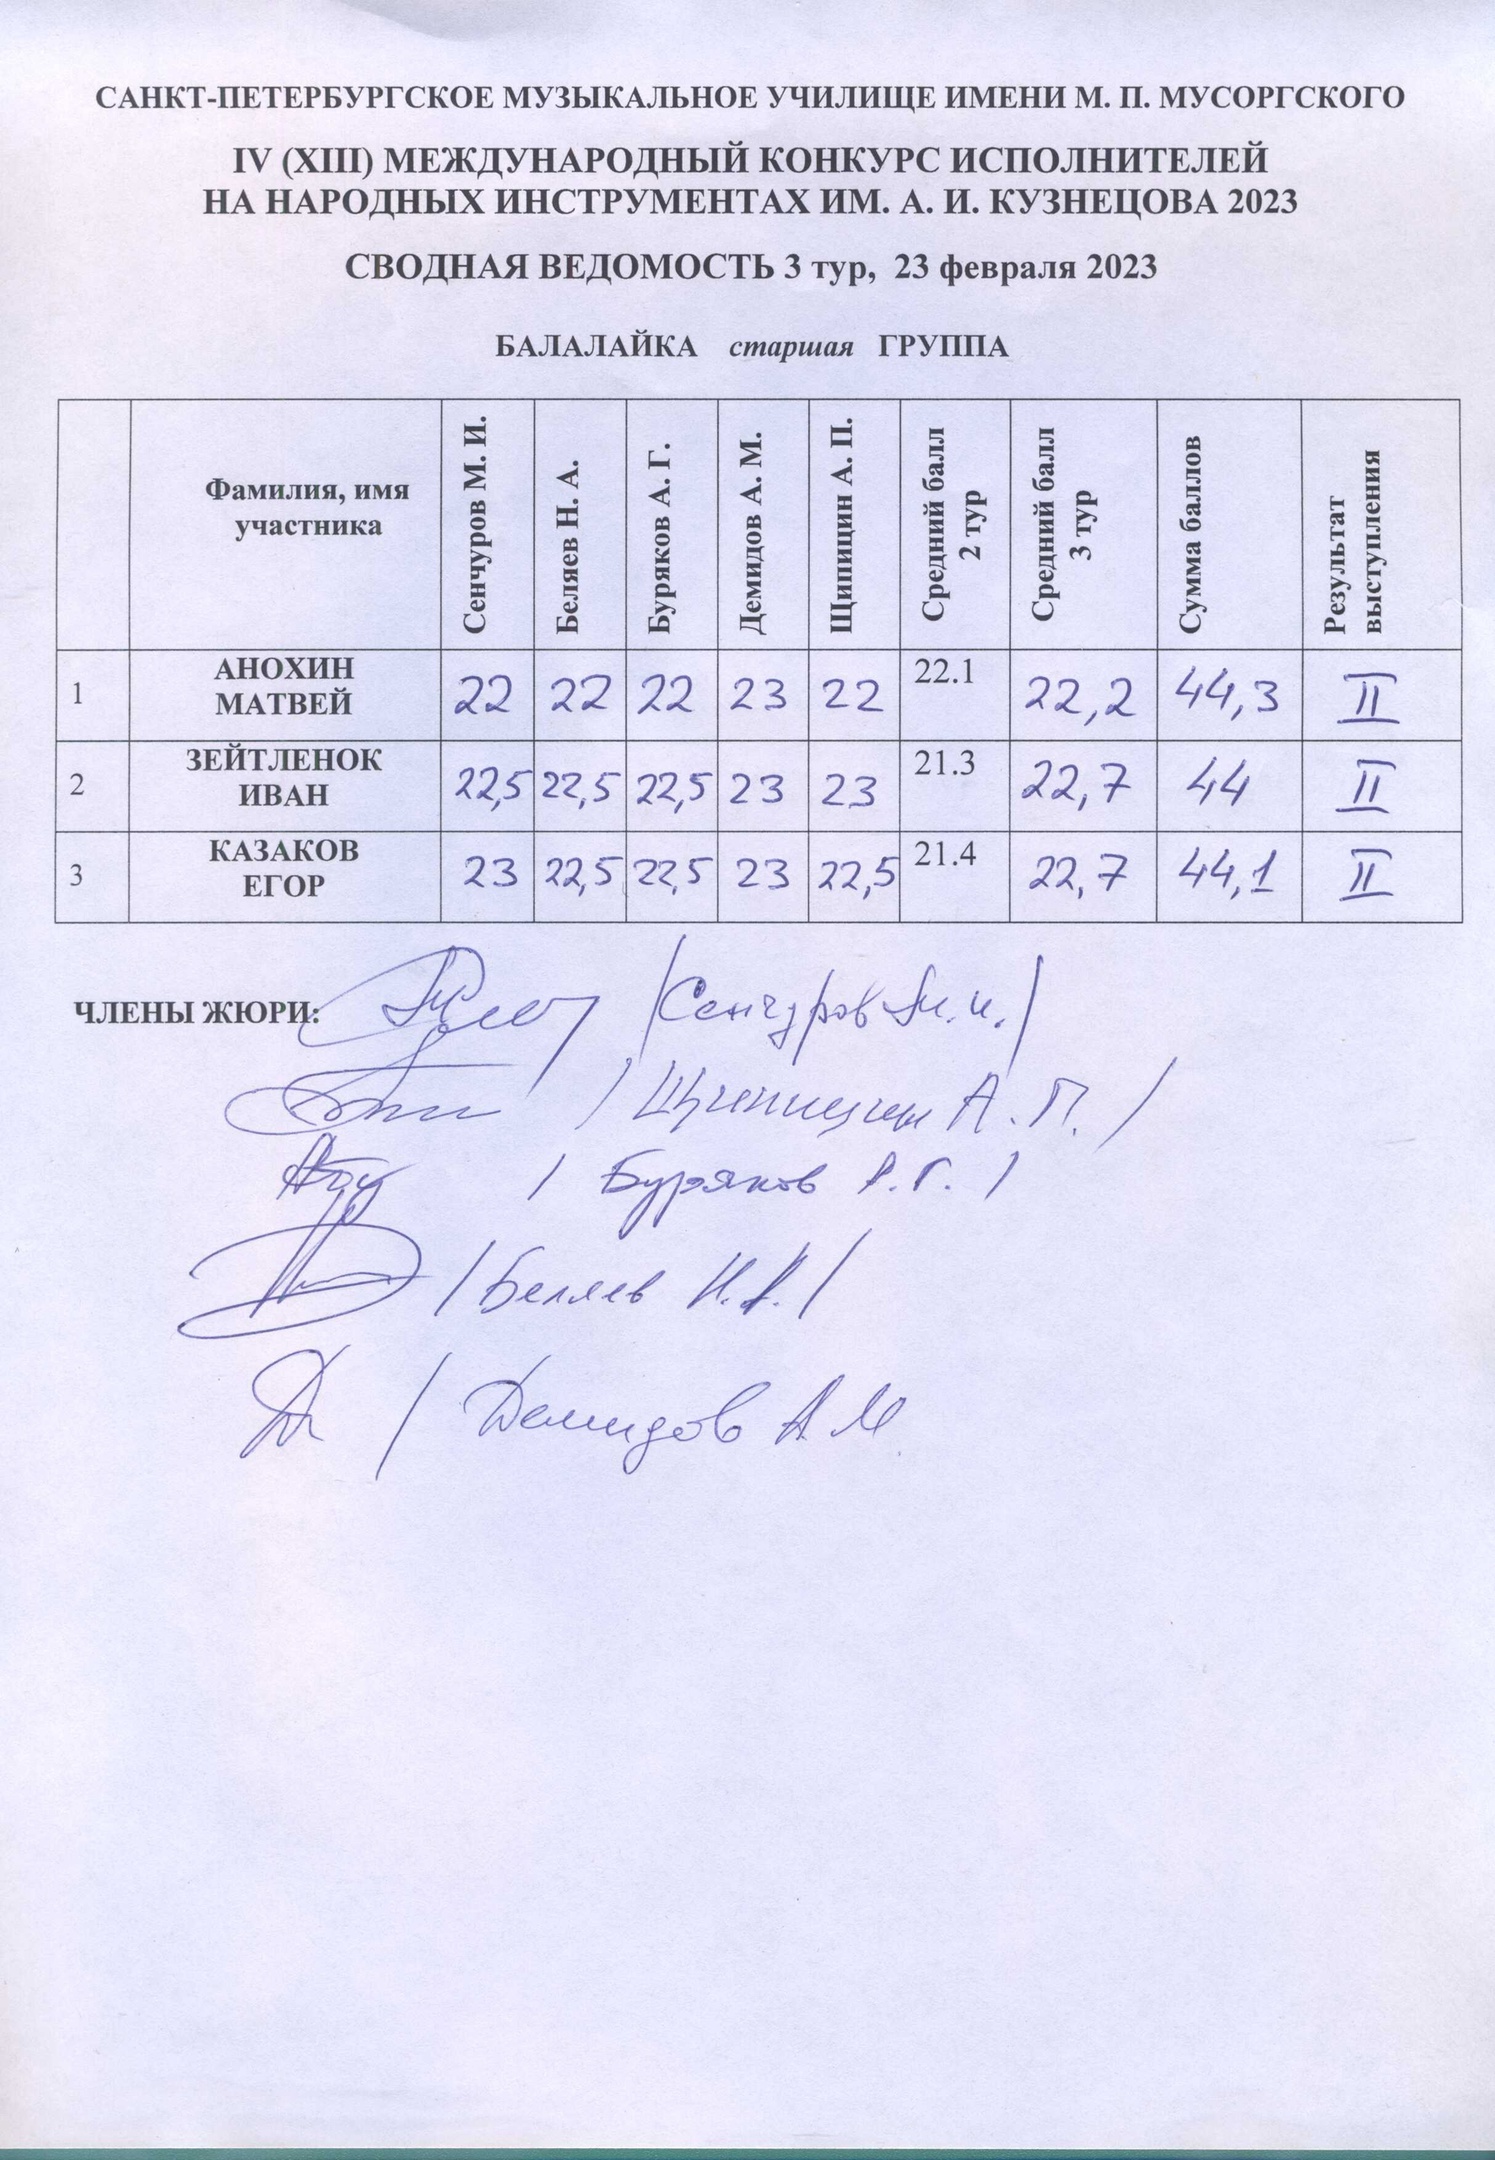 САНКТ-ПЕТЕРБУРГСКОЕ МУЗЫКАЛЬНОЕ УЧИЛИЩЕ ИМЕНИ М. П. МУСОРГСКОГО
IV (XIII) МЕЖДУНАРОДНЫЙ КОНКУРС ИСПОЛНИТЕЛЕЙ
НА НАРОДНЫХ ИНСТРУМЕНТАХ ИМ. А. И. КУЗНЕЦОВА 2023
СВОДНАЯ ВЕДОМОСТЬ 3 тур, 23 февраля 2023
БАЛАЛАЙКА старшая ГРУППА
Фамилия, имя
участника
Сенчуров М. И.
Беляев Н. А.
Буряков А. Г.
Демидов А. М.
Щипицин А. П.
Средний балл
2 тур
Средний балл
3 тур
Сумма баллов
Результат
выступления
1 АНОХИН МАТВЕЙ 22 22 22 23 22 22.1 22,2 44,3 II
2 ЗЕЙТЛЕНОК ИВАН 22,5 22,5 22,5 23 23 21.3 22,7 44 II
3 КАЗАКОВ ЕГОР 23 22,5 22,5 23 22,5 21.4 22,7 44,1 II
ЧЛЕНЫ ЖЮРИ: /Сенчуров М.И./
/Щипицин А.П./
/Буряков А.Г./
/Беляев Н.А./
/Демидов А М